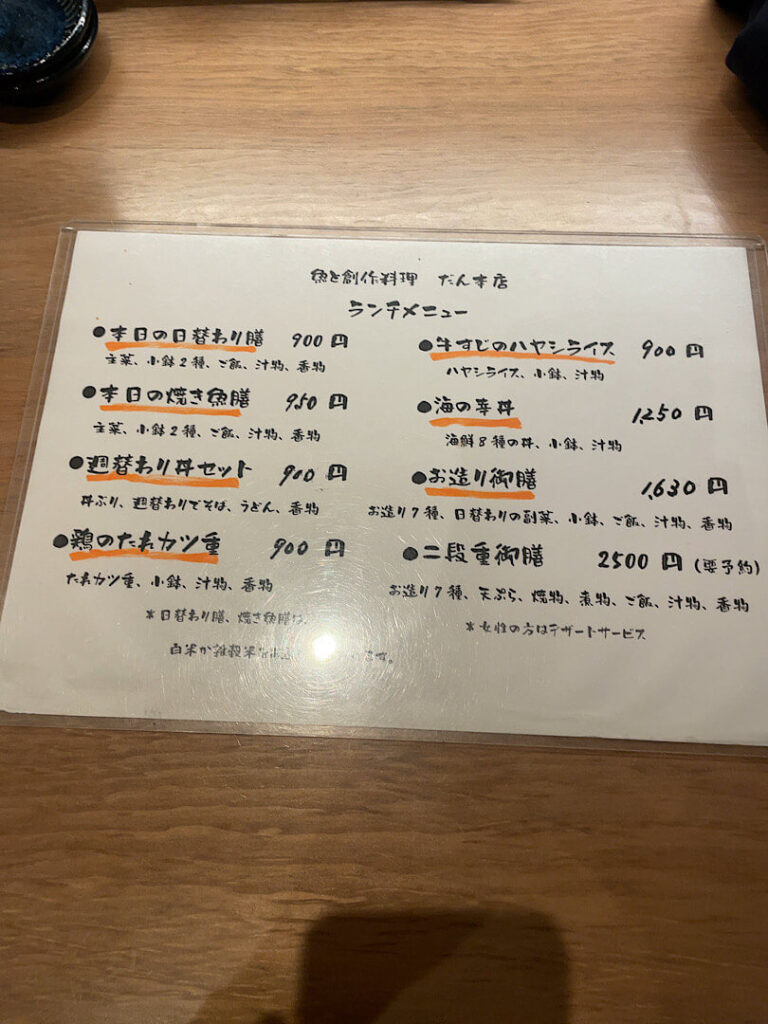 魚と創作料理 だん本店
ランチメニュー
●本日の日替わり膳 900円
主菜、小鉢2種、ご飯、汁物、香物
●本日の焼き魚膳 950円
主菜、小鉢2種、ご飯、汁物、香物
●週替わり丼セット 900円
丼ぶり、週替わりでそば、うどん、香物
●鶏のたれカツ重 900円
たれカツ重、小鉢、汁物、香物
*日替わり膳、焼き魚膳は、
白米か雑穀米を ます。
●牛すじのハヤシライス 900円
ハヤシライス、小鉢、汁物
●海の幸丼 1,250円
海鮮8種の丼、小鉢、汁物
●お造り御膳 1,630円
お造り7種、日替わりの副菜、小鉢、ご飯、汁物、香物
●二段重御膳 2500円(要予約)
お造り7種、天ぷら、焼物、煮物、ご飯、汁物、香物
*女性の方はデザートサービス